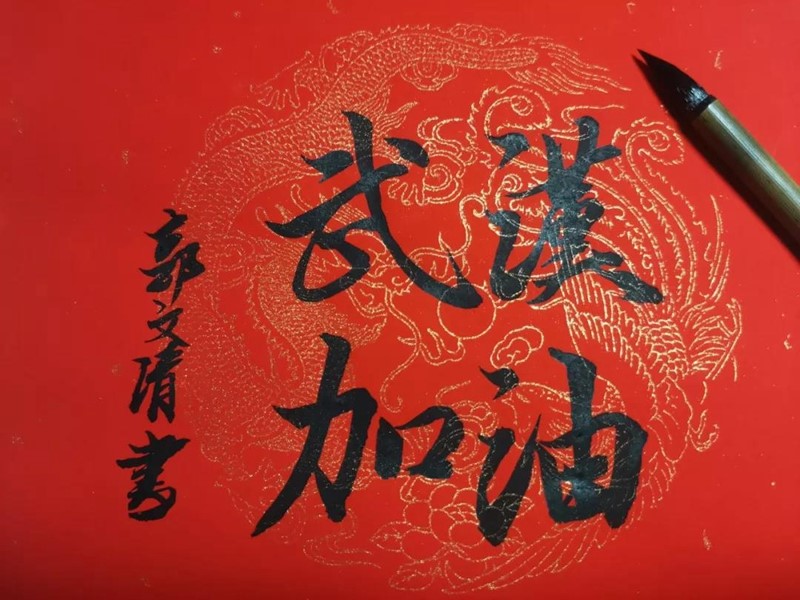 武漢
加油
郭文清書